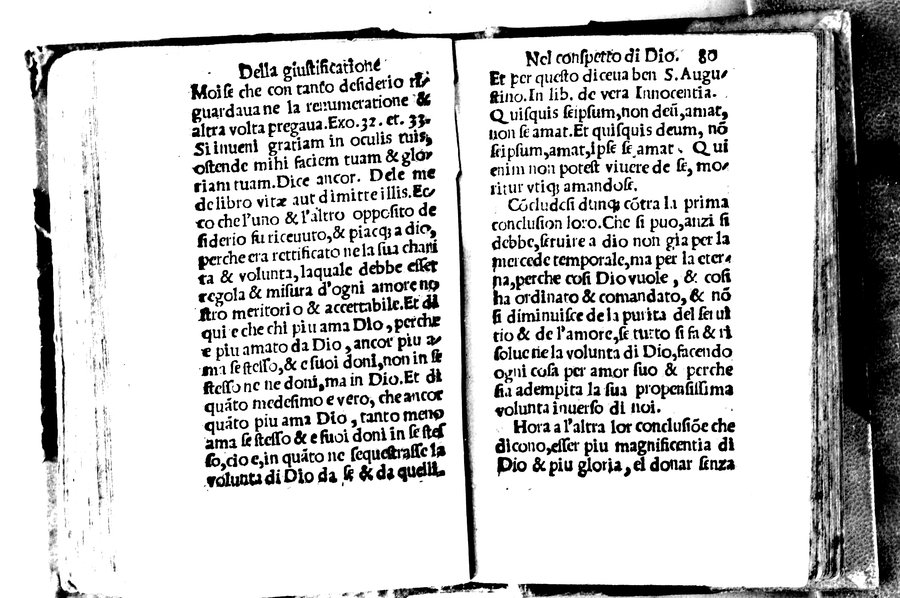 Della giustificatione
Moise che con tanto desiderio ri-
guardaua ne la renumeratione &
altra volta pregaua.Exo.32. et. 33.
Si inueni gratiam in oculis tuis,
ostende mihi faciem tuam & glo-
riam tuam.Dice ancor. Dele me
de libro vitæ aut dimitte illis.Ec-
co che l'uno & l'altro opposito de
siderio fu riceuuto,& piacq; a dio,
perche era rettificato ne la sua chari
ta & volunta, laquale debbe esser
regola & misura d'ogni amore no
stro meritorio & accettabile.Et di
qui e che chi piu ama Dio, perche
e piu amato da Dio, ancor piu a-
ma se stesso,& e suoi doni,non in se
stesso ne ne doni,ma in Dio.Et di
quãto medesimo e vero, che ancor
quãto piu ama Dio, tanto meno
ama se stesso & e suoi doni in se stes
so,cio e,in quãto ne sequestrasse la
volunta di Dio da se & da quelli.
Nel conspetto di Dio. 80
Et per questo diceua ben S.Augu-
stino.In lib. de vera Innocentia.
Quisquis seipsum,non deũ,amat,
non se amat.Et quisquis deum, nõ
seipsum,amat,ipse se amat. Qui
enim non potest viuere de se, mo-
ritur vtiq; amando se.
Cõcludesi dunq; cõtra la prima
conclusion loro.Che si puo,anzi si
debbe,seruire a dio non gia per la
mercede temporale,ma per la eter-
na,perche cosi Dio vuole, & cosi
ha ordinato & comandato, & nõ
si diminuisce de la purita del serui
tio & de l'amore,se tutto si fa & ri
solue ne la volunta di Dio,facendo
ogni cosa per amor suo & perche
sia adempita la sua propensissima
volunta inuerso di noi.
Hora a l'altra lor conclusiõe che
dicono,esser piu magnificentia di
Dio & piu gloria, el donar senza